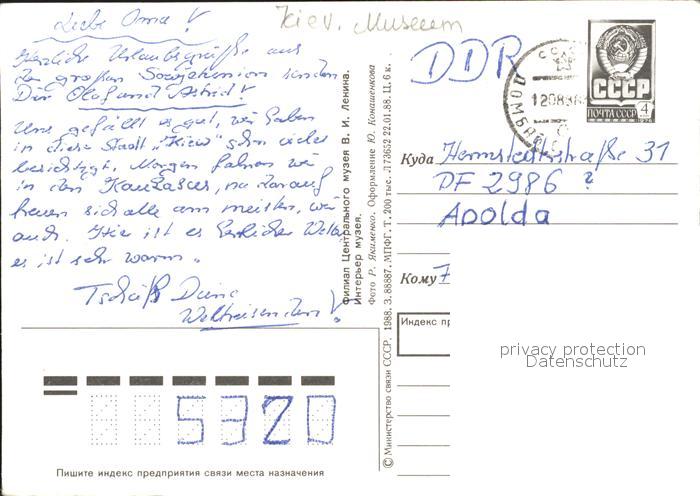 Liebe Oma!
Kiev. Museum
Herzliche Urlaubsgrüße aus
der großen Sowjetunion senden
Dir Olaf und Astrid!
Uns gefällt es gut, wir haben
in dieser Stadt "Kiew" schon vieles
besichtigt. Morgen fahren wir
in den Kaukasus, na darauf
freuen sich alle am meisten, wir
auch. Hier ist es herrliches Wetter
es ist sehr warm.
Tschüß Deine
Weltreisenden!
DDR
СССР
ПОЧТА СССР
4
Куда Hermstedterstraße 31
PF 2986 ?
Apolda
Кому
Индекс пр
privacy protection
Datenschutz
Филиал Центрального музея В. И. Ленина.
Интерьер музея.
Фото Р. Якименко. Оформление Ю. Конашенкова
© Министерство связи СССР, 1988. З. 88887. МПФГ. Т. 200 тыс. Л73652 22.01.88. Ц. 6 к.
5320
Пишите индекс предприятия связи места назначения